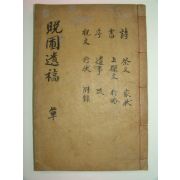 詩 祭文 家狀
書 上樑文 行略
序 遺事 跋
祝文 行狀 附錄
晩圃遺稿